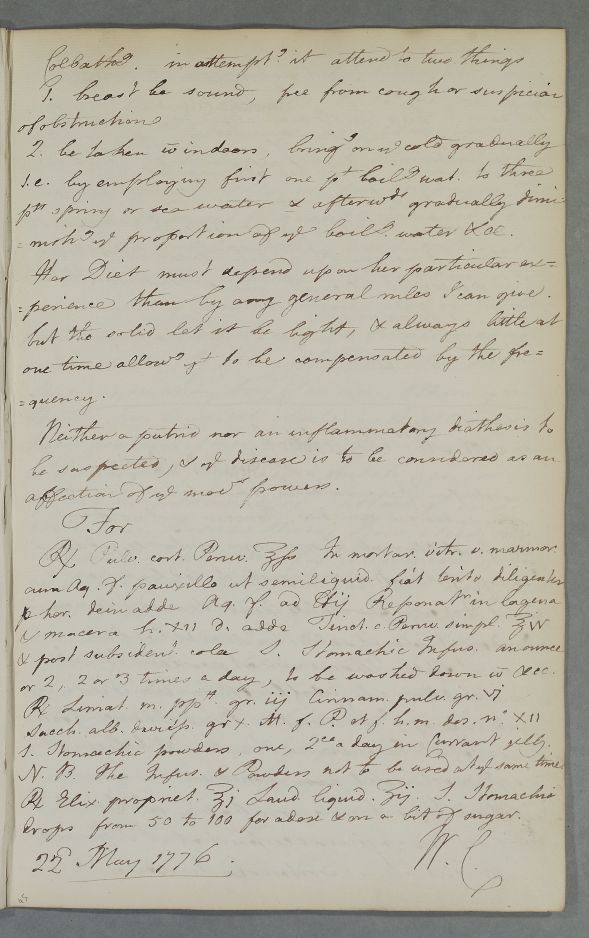 Colbath?. in attempt? it attend to two things
1. breast be sound, free from cough or suspicion
of obstruction
2. be taken w indoors, bring? on ye cold gradually
i.e. by employing first one pt boild wat. to three
pts spring or sea water & afterwds gradually dimi
=nish? ye proportion of ye boild water &c.
Her Diet must depend upon her particular ex=
=perience than by any general rules I can give.
but the solid let it be light, & always little at
one time allow? yt to be compensated by the fre=
=quency.
Neither a putrid nor an inflammatory diathesis to
be suspected, & ye disease is to be considered as an
affection of ye movg powers.
For
℞ Pulv. cort. Peruv. ℥ſs In mortar. vitr. v. marmor.
cum Aq. f. pauxillo ut semiliquid. fiat tento diligenter
p hor. dein adde Aq. f. ad ℔ij Reponatr in lagena
& macera h. XII D. adde Tinct. c. Peruv. simpl. ℥iv
& post subsident. cola S. Stomachic Infus. an ounce
or 2, 2 or 3 times a day, to be washed down w &c.
℞ Limat. m. ppt. gr. iij Cinnam. pulv. gr. vj
Sacch. alb. gr x. M. f. P. et f. h. m. dos. no. XII
S. Stomachic powders, one, 2ce a day in Currant jelly.
N. B. The Infus. & Powders not to be used at ye same time
℞ Elix. propriet. ℥j Laud. liquid. ʒij. S. Stomachic
drops from 50 to 100 for a dose & on a bit of sugar.
22d May 1776. W. C.